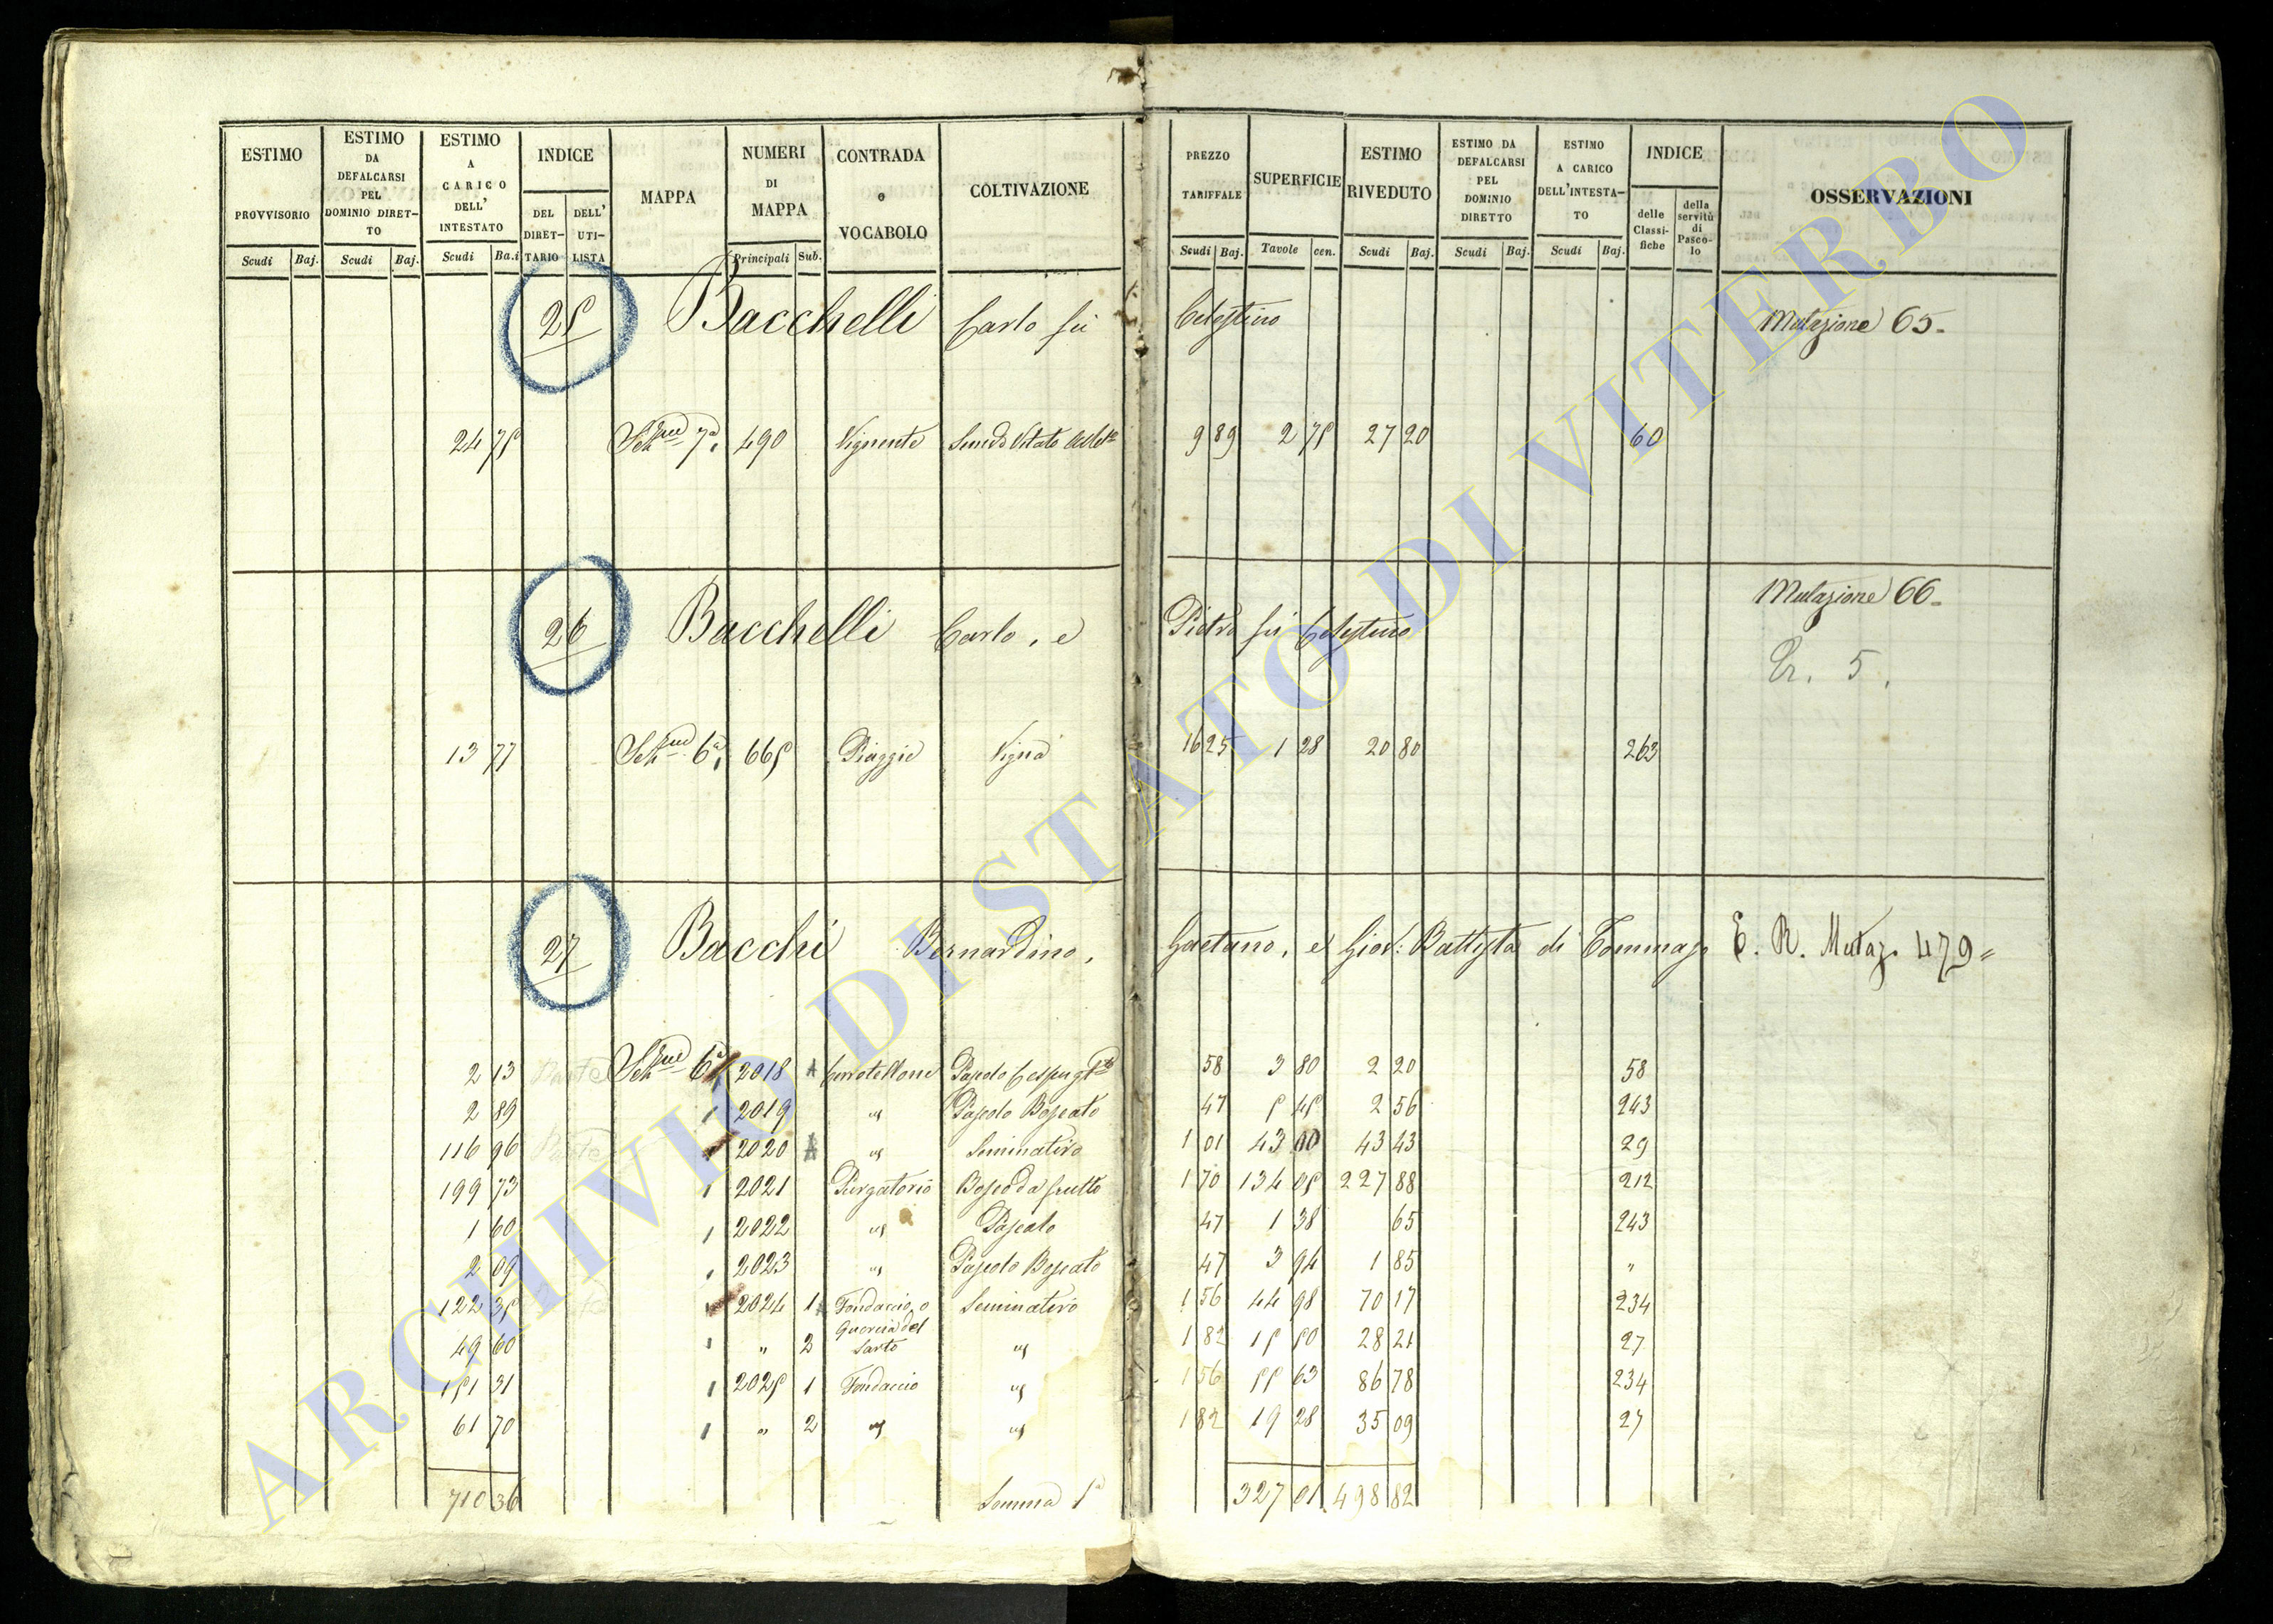 ESTIMO PROVVISORIO
ESTIMO DA DEFALCARSI PEL DOMINIO DIRET-TO
ESTIMO A CARICO DELL' INTESTATO
INDICE
DEL DIRET-TARIO
DELL' UTI-LISTA
MAPPA
NUMERI DI MAPPA
CONTRADA o VOCABOLO
COLTIVAZIONE
PREZZO TARIFFALE
SUPERFICIE
ESTIMO RIVEDUTO
ESTIMO DA DEFALCARSI PEL DOMINIO DIRETTO
ESTIMO A CARICO DELL'INTESTA-TO
INDICE
delle Classi-fiche
della servitù di Pasco-lo
OSSERVAZIONI
Scudi Baj. Scudi Baj. Scudi Ba.i Principali Sub. Scudi Baj. Tavole cen. Scudi Baj. Scudi Baj. Scudi Baj.
25 Bacchelli Carlo fù Celestino Mutazione 65.
24 75 Sez.ne 7a, 490 Vignente Semvo Vitato 9 89 2 75 27 20 60
26 Bacchelli Carlo, e Pietro fù Celestino Mutazione 66.
Er. 5.
13 77 Sez.ne 6a, 665 Piaggie Vigna 16 25 1 28 20 80 263
27 Bacchi Bernardino, Gaetano, e Giov: Battista di Tommaso E. R. Mutaz. 479=
2 13 Parte Sez.ne 6a 2018 A Cerrotellone Pascolo Cespugto 58 3 80 2 20 58
2 89 2019 " Pascolo Boscato 47 5 45 2 56 243
116 96 Parte 2020 A " Seminativo 1 01 43 00 43 43 29
199 73 2021 Purgatorio Bosco da frutto 1 70 134 05 227 88 212
1 60 2022 " Pascolo 47 1 38 65 243
2 09 2023 " Pascolo Boscato 47 3 94 1 85 "
122 35 2024 1 Fondaccio, o Seminativo 1 56 44 98 70 17 234
49 60 " 2 Quercia del Sarto " 1 82 15 50 28 21 27
151 31 2025 1 Fondaccio " 1 56 55 63 86 78 234
61 70 " 2 " " 1 82 19 28 35 09 27
710 36 Somma 1a 327 01 498 82
ARCHIVIO DI STATO DI VITERBO